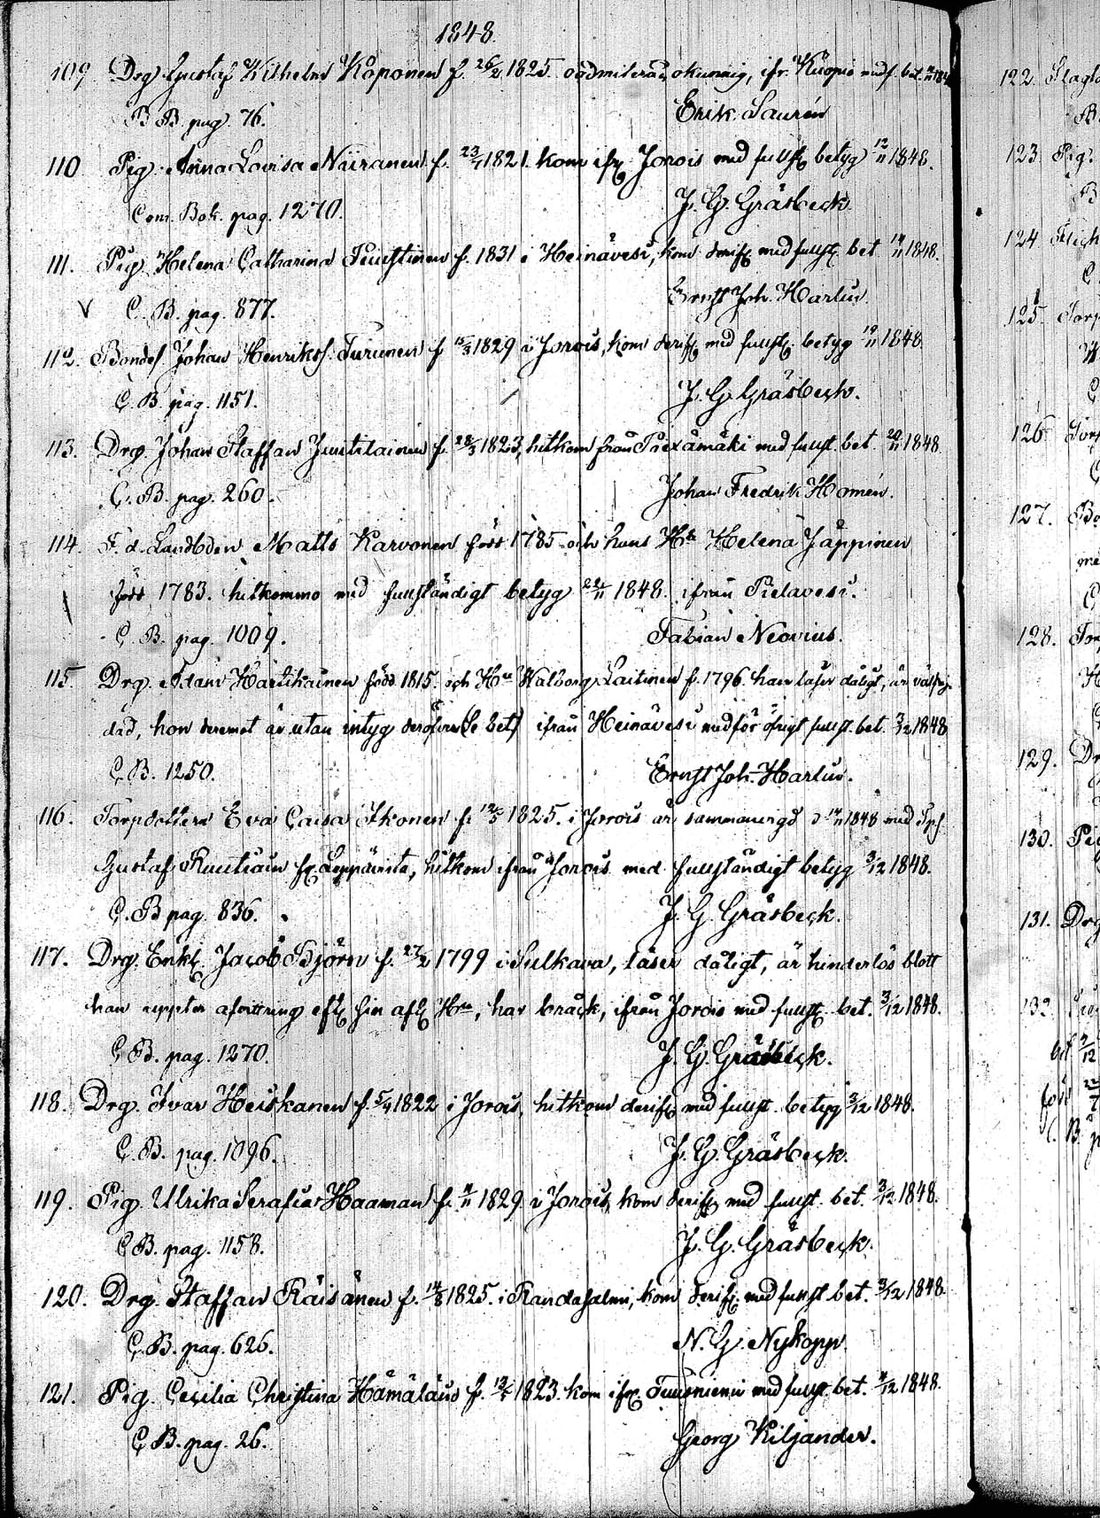 1848.
109. Drg Gustaf Wilhelm Koponen f. 26/2 1825. oadmitterad, okunnig, ifr. Kuopio medf. bet.
B B. pag. 76. Erik Saurén
110 Pig. Anna Lovisa Närränen f. 23/7 1821. kom ifr Jorois med fullst betyg 12/11 1848.
Com. Bok. pag. 1270. J. G. Gräsbeck.
111. Pig. Helena Catharina f. 1831 i Heinävesi, kom derifr med fullst bet 14/11 1848.
V C. B. pag. 877. Ernst Joh. Harlin.
112. Bondes. Johan Henrikss. Turunen f 15/3 1829 i Jorois, kom derifr med fullst. betyg 19/11 1848
C. B. pag. 1151. J. G Gräsbeck.
113. Drg. Johan Staffan Juutilainen f. 28/3 1823, hitkom från Piexämäki med fullst. bet. 20/11 1848
C. B. pag. 260. Johan Fredrik Homén.
114. F. d. Landbden Matts Karvonen född 1785 och hans Hu Helena Jäppinen
född 1783. hitkommo med fullständigt betyg 22/11 1848. ifrån Pielavesi.
C. B. pag. 1009. Fabian Neovius.
115. Drg. Adam Hartikainen född 1815. och Hu Walborg Laitinen f. 1796. han läser dåligt, är
dad, hon deremot är utan intyg deröfver (se bet) ifrån Heinävesi medför öfrigt fullst. bet. 3/12 1848
C B. 1250. Ernst Joh. Harlin.
116. Torpdottern Eva Caisa Ikonen f. 12/5 1825. i Jorois är sammanvigd d 14/11 1848 med
Gustaf fr. Leppävirta, hitkom ifrån Jorois med fullständigt betyg 3/12 1848.
C. B pag. 836. J. G. Gräsbeck.
117. Drg. Enkl. Jacob Björn f. 27/2 1799 i Sulkava, läser dåligt, är hinderlös blott
han uppter afvittring eft. sin afl. Hu, har bråck, ifrån Jorois med fullst. bet. 3/12 1848.
C. B. pag. 1270. J. G. Gräsbeck.
118. Drg. Ivar Heiskanen f. 5/4 1822 i Jorois, hitkom derifr med fullst. betyg 3/12 1848.
C. B. pag. 1096. J. G. Gräsbeck.
119. Pig. Ulrika Serafia Haaman f. 1829 i Jorois, kom derifr med fullst. bet. 3/12 1848.
C B. pag. 1158. J. G. Gräsbeck.
120. Drg. Staffan Räisänen f. 14/8 1825. i Randasalmi, kom derifr. med fullst bet. 3/12 1848.
C. B. pag. 626. N. G. Nykopp.
121. Pig. Cecilia Christina Hämäläin f. 1823. kom ifr. Tuusniemi med fullst. bet. 1848.
C B. pag. 26. Georg Kiljander.
122.
123. Pig.
124
125.
126
127.
128.
129.
130.
131. Drg
132.